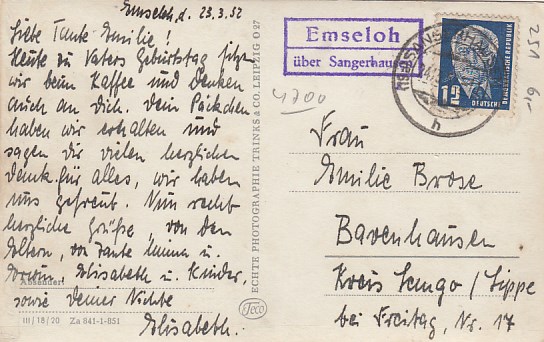 Emseloh, d. 23.3.52
Liebe Tante Emilie!
Heute zu Vaters Geburtstag sitzen
wir beim Kaffee und denken
auch an Dich. Dein Päckchen
haben wir erhalten und
sagen Dir vielen herzlichen
Dank für alles, wir haben
uns gefreut. Nun recht
herzliche Grüße, von den
Eltern, von Tante Minna u.
Erwin, Elisabeth u. Kinder,
Absender:
sowie Deiner Nichte
Elisabeth.
III/18/20 Za 841-1-851
ECHTE PHOTOGRAPHIE TRINKS & CO. LEIPZIG O 27
Emseloh
über Sangerhausen
h
12
DEUTSCHE
4700
251
6,-
Frau
Emilie Brose
Bavenhausen
Kreis Lemgo / Lippe
bei Freitag, Nr. 17